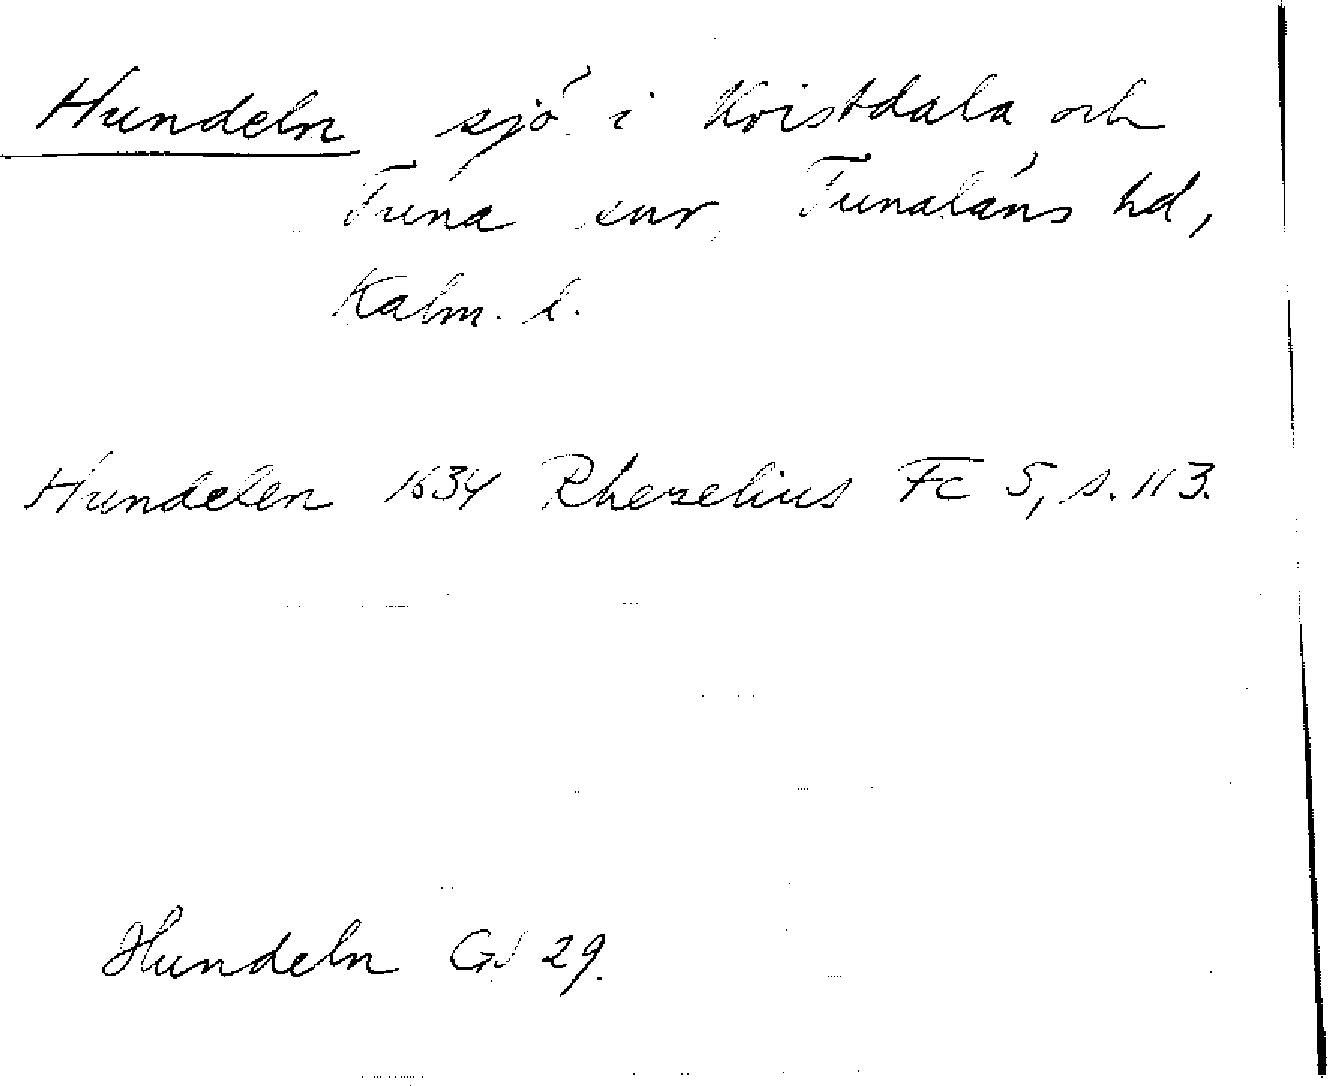 Hundeln sjö i Kristdala och
Tuna snr, Tunaläns hd,
Kalm. l.
Hundelen 1634 Rhezelius Fc 5, s. 113.
Hundeln GV 29.